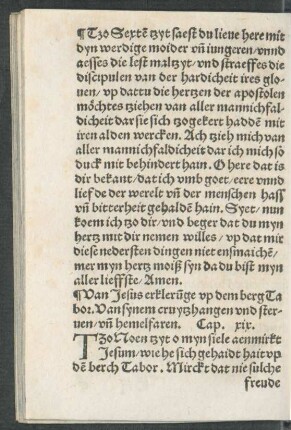 ¶Tzo Sextē tzyt saeſt du lieue here mit
dyn werdige moider vñ iungeren/vnnd
aeſſes die leſt maltzyt/vnd ſtraeffes die
diſcipulen van der hardicheit ires glo-
uen/vp dattu die hertzen der apoſtolen
möchtes tziehen van aller mannichfal-
dicheit dar ſie ſich tzogekert haddē mit
iren alden wercken. Ach zieh mich van
aller mannichfaldicheit dar ich mich ſo
duck mit behindert hain. O here dat is
dir bekant/dat ich vmb goet/eere vnnd
lief de der werelt vñ der menſchen haſſ
vñ bitterheit gehaldē hain. Syet/nun
koem ich tzo dir/vnd beger dat du myn
hertz mit dir nemen willes/vp dat mir
dieſe nederſten dingen niet enſmaichē/
mer myn hertz moiß ſyn da du biſt myn
aller lieffſte/Amen.
¶Van Jeſus erklerūge vp dem berg Ta
bor. Van ſynem cruytzhangen vnd ſter-
uen/vñ hemelfaren. Cap. xix.
TZo Noen tzyt o myn ſiele aenmirckt
Jeſum/wie he ſich gehaidt hait vp
dē berch Tabor. Mirckt dat nie ſulche
freude